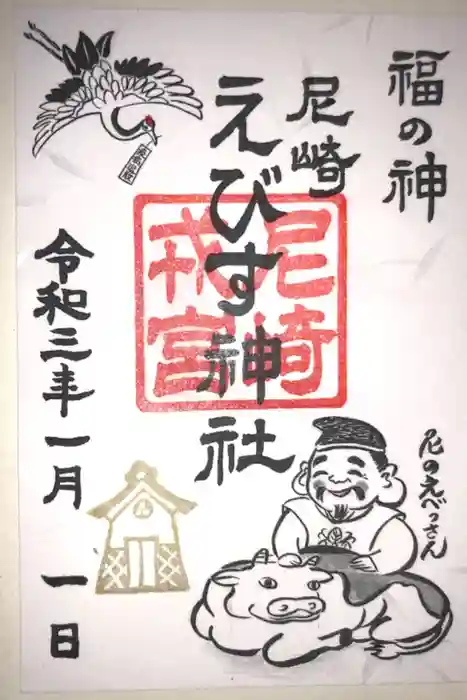 福の神
尼崎
えびす神社
尼崎
戎宮
令和三年一月一日
尼のえべっさん